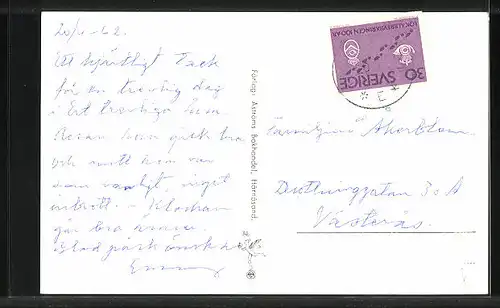 20/4-62.
Ett hjärtligt Tack
för en trevlig dag
i Ert trevliga hem.
Resan hem gick bra
och allt hem var
som vanligt, inget
inbrott. - Klockan
går bra
Glad påsk önskar
Förlag: Åströms Bokhandel, Härnösand.
LOKALBEVARINGEN 100 ÅR
30 SVERIGE
Familjen Åkerblom
Drottninggatan 30 A
Västerås.